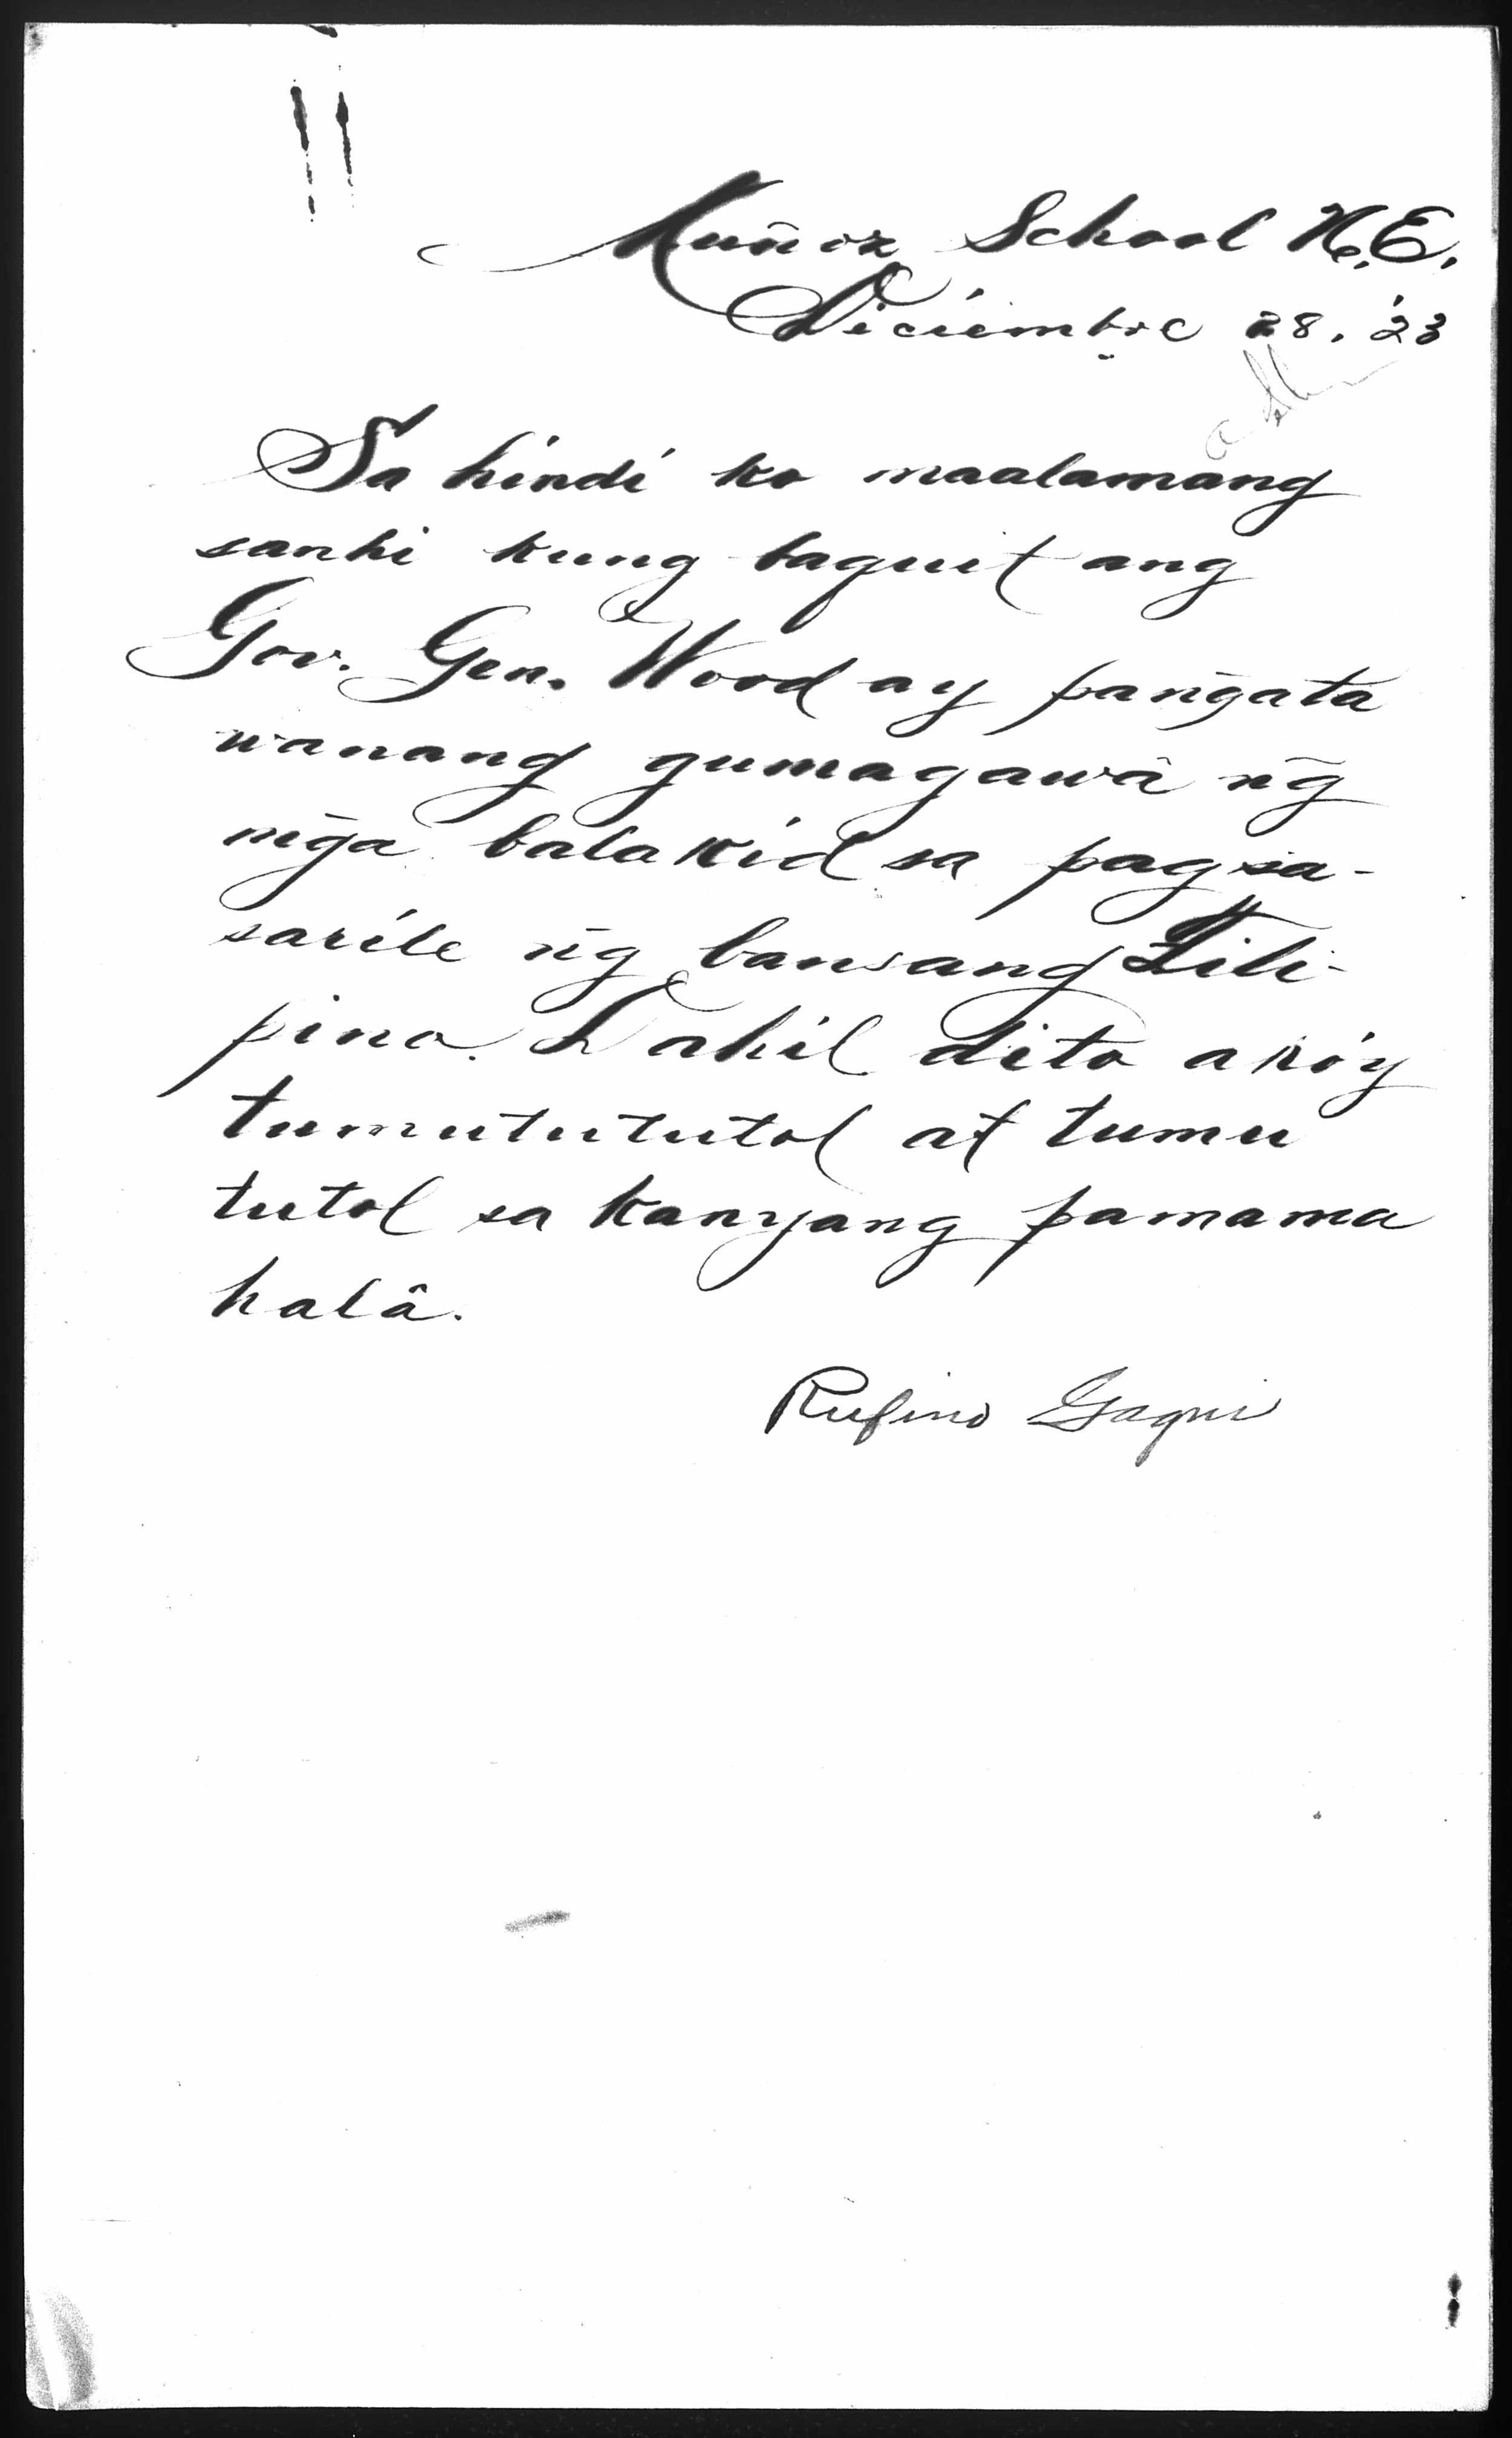 Muñoz, School N.E.
Diciembre 28, '23
Sa hindi ko maalamang
sanhi kung baguit ang
Gov. Gen. Wood ay pang̃ata
wanang gumagawâ ng̃
mg̃a balakid sa pagsa-
sarile ng̃ bansang Fili-
pino. Dahil dito ako'y
tumutututol at tumu
tutol sa kanyang pamama
halâ.
Rufino Gagui